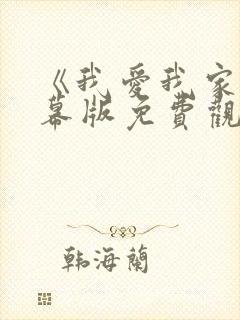 《我愛我家
幕版免費觀
韩海蘭